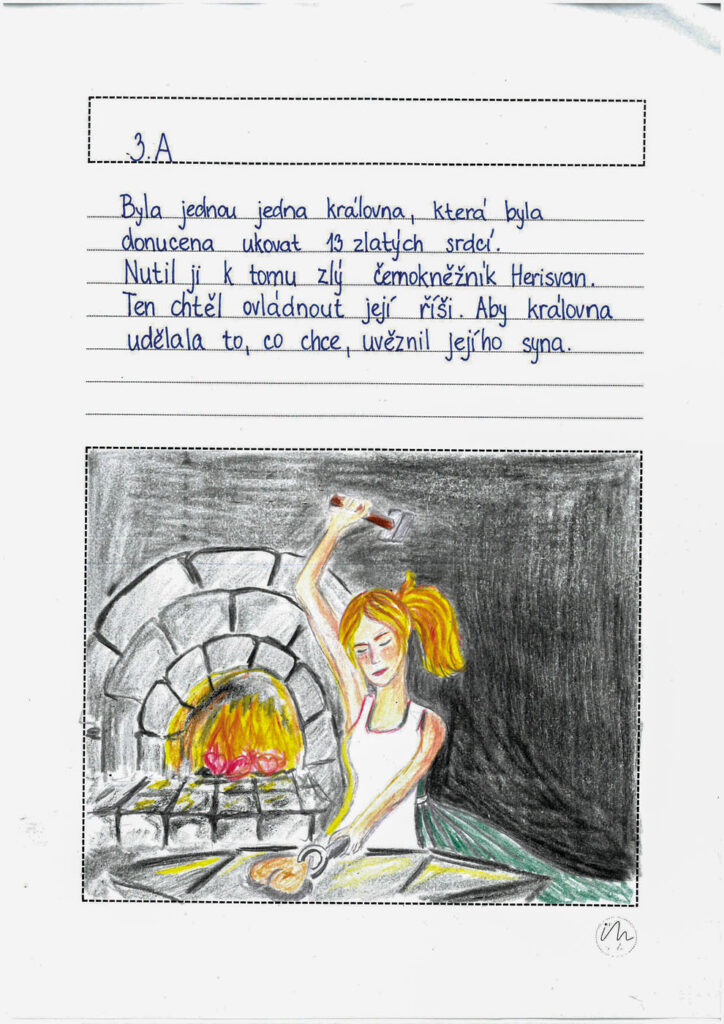 3.A
Byla jednou jedna královna, která byla
donucena ukovat 13 zlatých srdcí.
Nutil ji k tomu zlý černokněžník Herisvan.
Ten chtěl ovládnout její říši. Aby královna
udělala to, co chce, uvěznil jejího syna.